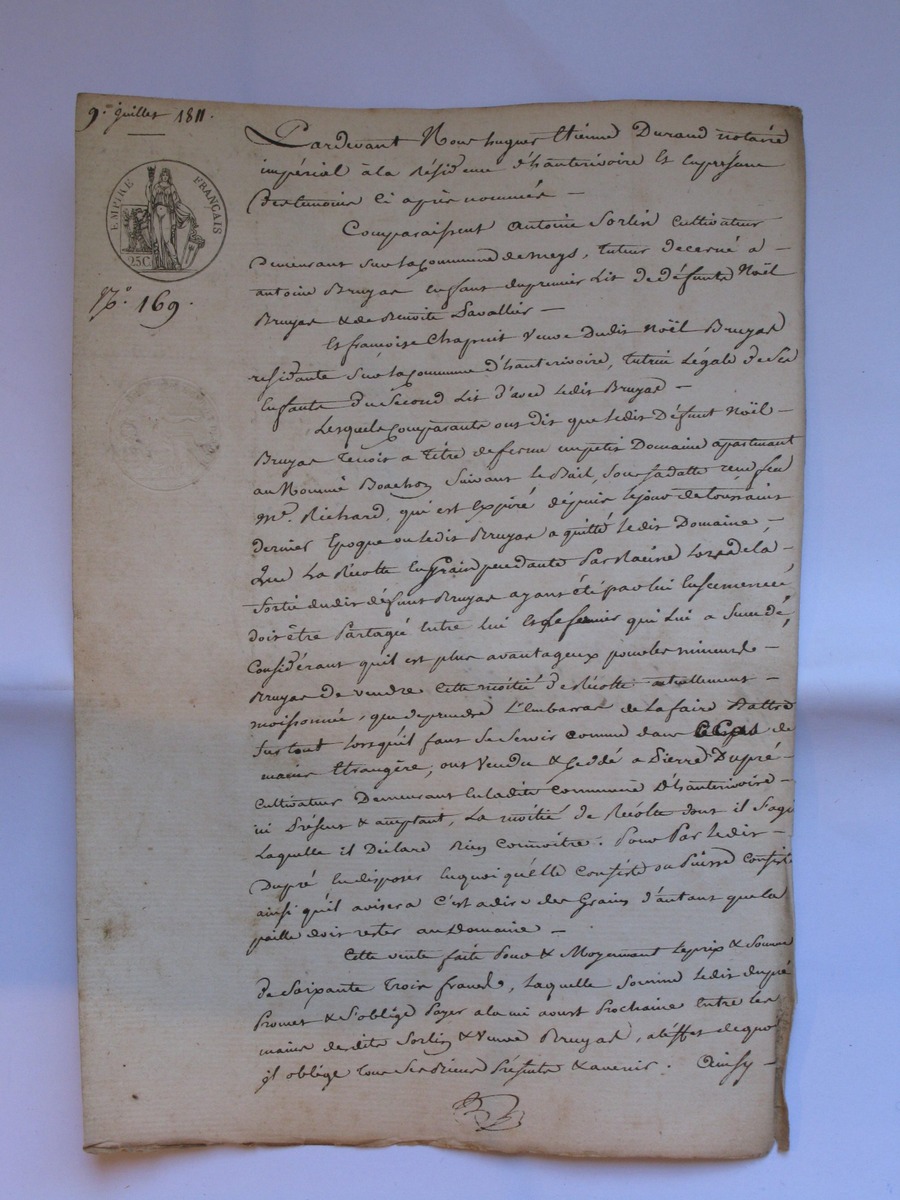 9. juillet 1811.
EMPIRE FRANÇAIS
25C
N.o 169.
Pardevant Nous hugues Etienne Durand notaire
impérial à la Résidence d'hauterivoire Et en présence
des temoins Ci après nommés —
Comparaissent Antoine Sorlin Cultivateur
Demeurant sur la Commune de meys, tuteur décerné a —
antoine Bruyas enfant du premier Lit de défunts Noël
Bruyas & de Benoite Lavallier —
Et françoise Chapuit Veuve dudit Noël Bruyas
residante sur la Commune d'hauterivoire, tutrice Légale de Ses
Enfants du Second Lit d'avec ledit Bruyas —
Lesquels Comparants ont dit que ledit Défunt Noël —
Bruyas tenoit a titre de ferme un petit Domaine apartenant
au Nommé Boachon Suivant le Bail, sous sa datte reçu feu
Me. Richard, qui est Expiré depuis le jour de toussaint
dernier Epoque ou ledit Bruyas a quitté ledit Domaine —
Que La Récolte En Grain pendante Par Racine Lors de la —
Sortie dudit défunt Bruyas ayant été par lui Ensemencée
doit être Partagée Entre Lui Et le fermier qui Lui a Succédé,
Considérant qu'il est plus avantageux pour les mineurs —
Bruyas de vendre Cette moitié de Récolte actuellement —
moissonnée, que de prendre L'embarras de La faire Battre
Surtout lorsqu'il faut se servir comme dans de
mains Etrangère, ont Vendu & Ceddé a Pierre Dupré —
Cultivateur Demeurant En ladite Commune D'hauterivoire —
ici Présent & acceptant, La moitié de Récolte dont il s'agit
Laquelle il Déclare Bien Connoitre. Pour Par ledit —
Dupré En disposer En quoi qu'elle Consiste ou Puisse Consister
ainsi qu'il avisera C'est a dire des Grains d'autant que la
paille doit rester au Domaine —
Cette vente faite Pour & Moyennant Le prix & Somme
de Soixante trois francs, Laquelle Somme ledit dupré
Promet & S'oblige Payer a la mi aoust Prochaine Entre les
mains desdits Sorlin & Veuve Bruyas, a l'effet de quoi
il oblige tous Ses Biens Présents & avenir. Ainsy —